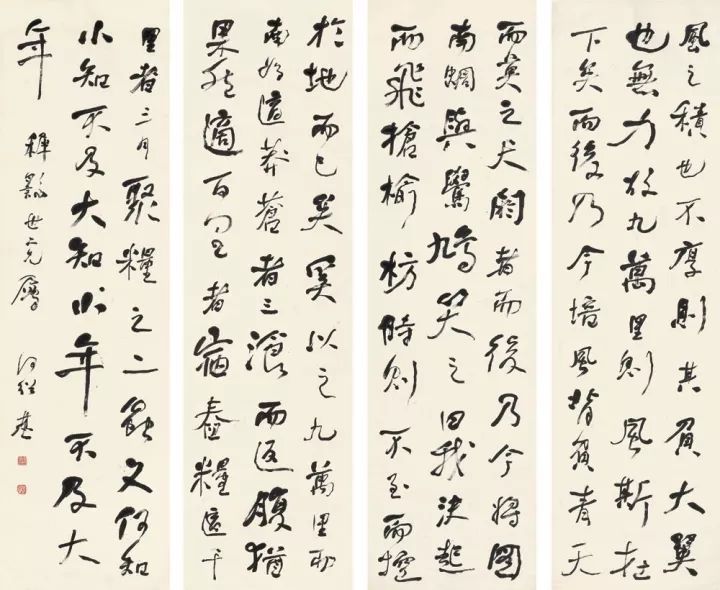 風之積也不厚則其負大翼
也無力故九萬里則風斯在
下矣而後乃今培風背負青天
而莫之夭閼者而後乃今將圖
南蜩與鷽鳩笑之曰我決起
而飛槍榆枋時則不至而控
於地而已矣奚以之九萬里而
南為適莽蒼者三湌而返腹猶
果然適百里者宿舂糧適千
里者三月聚糧之二蟲又何知
小知不及大知小年不及大
年
何紹基